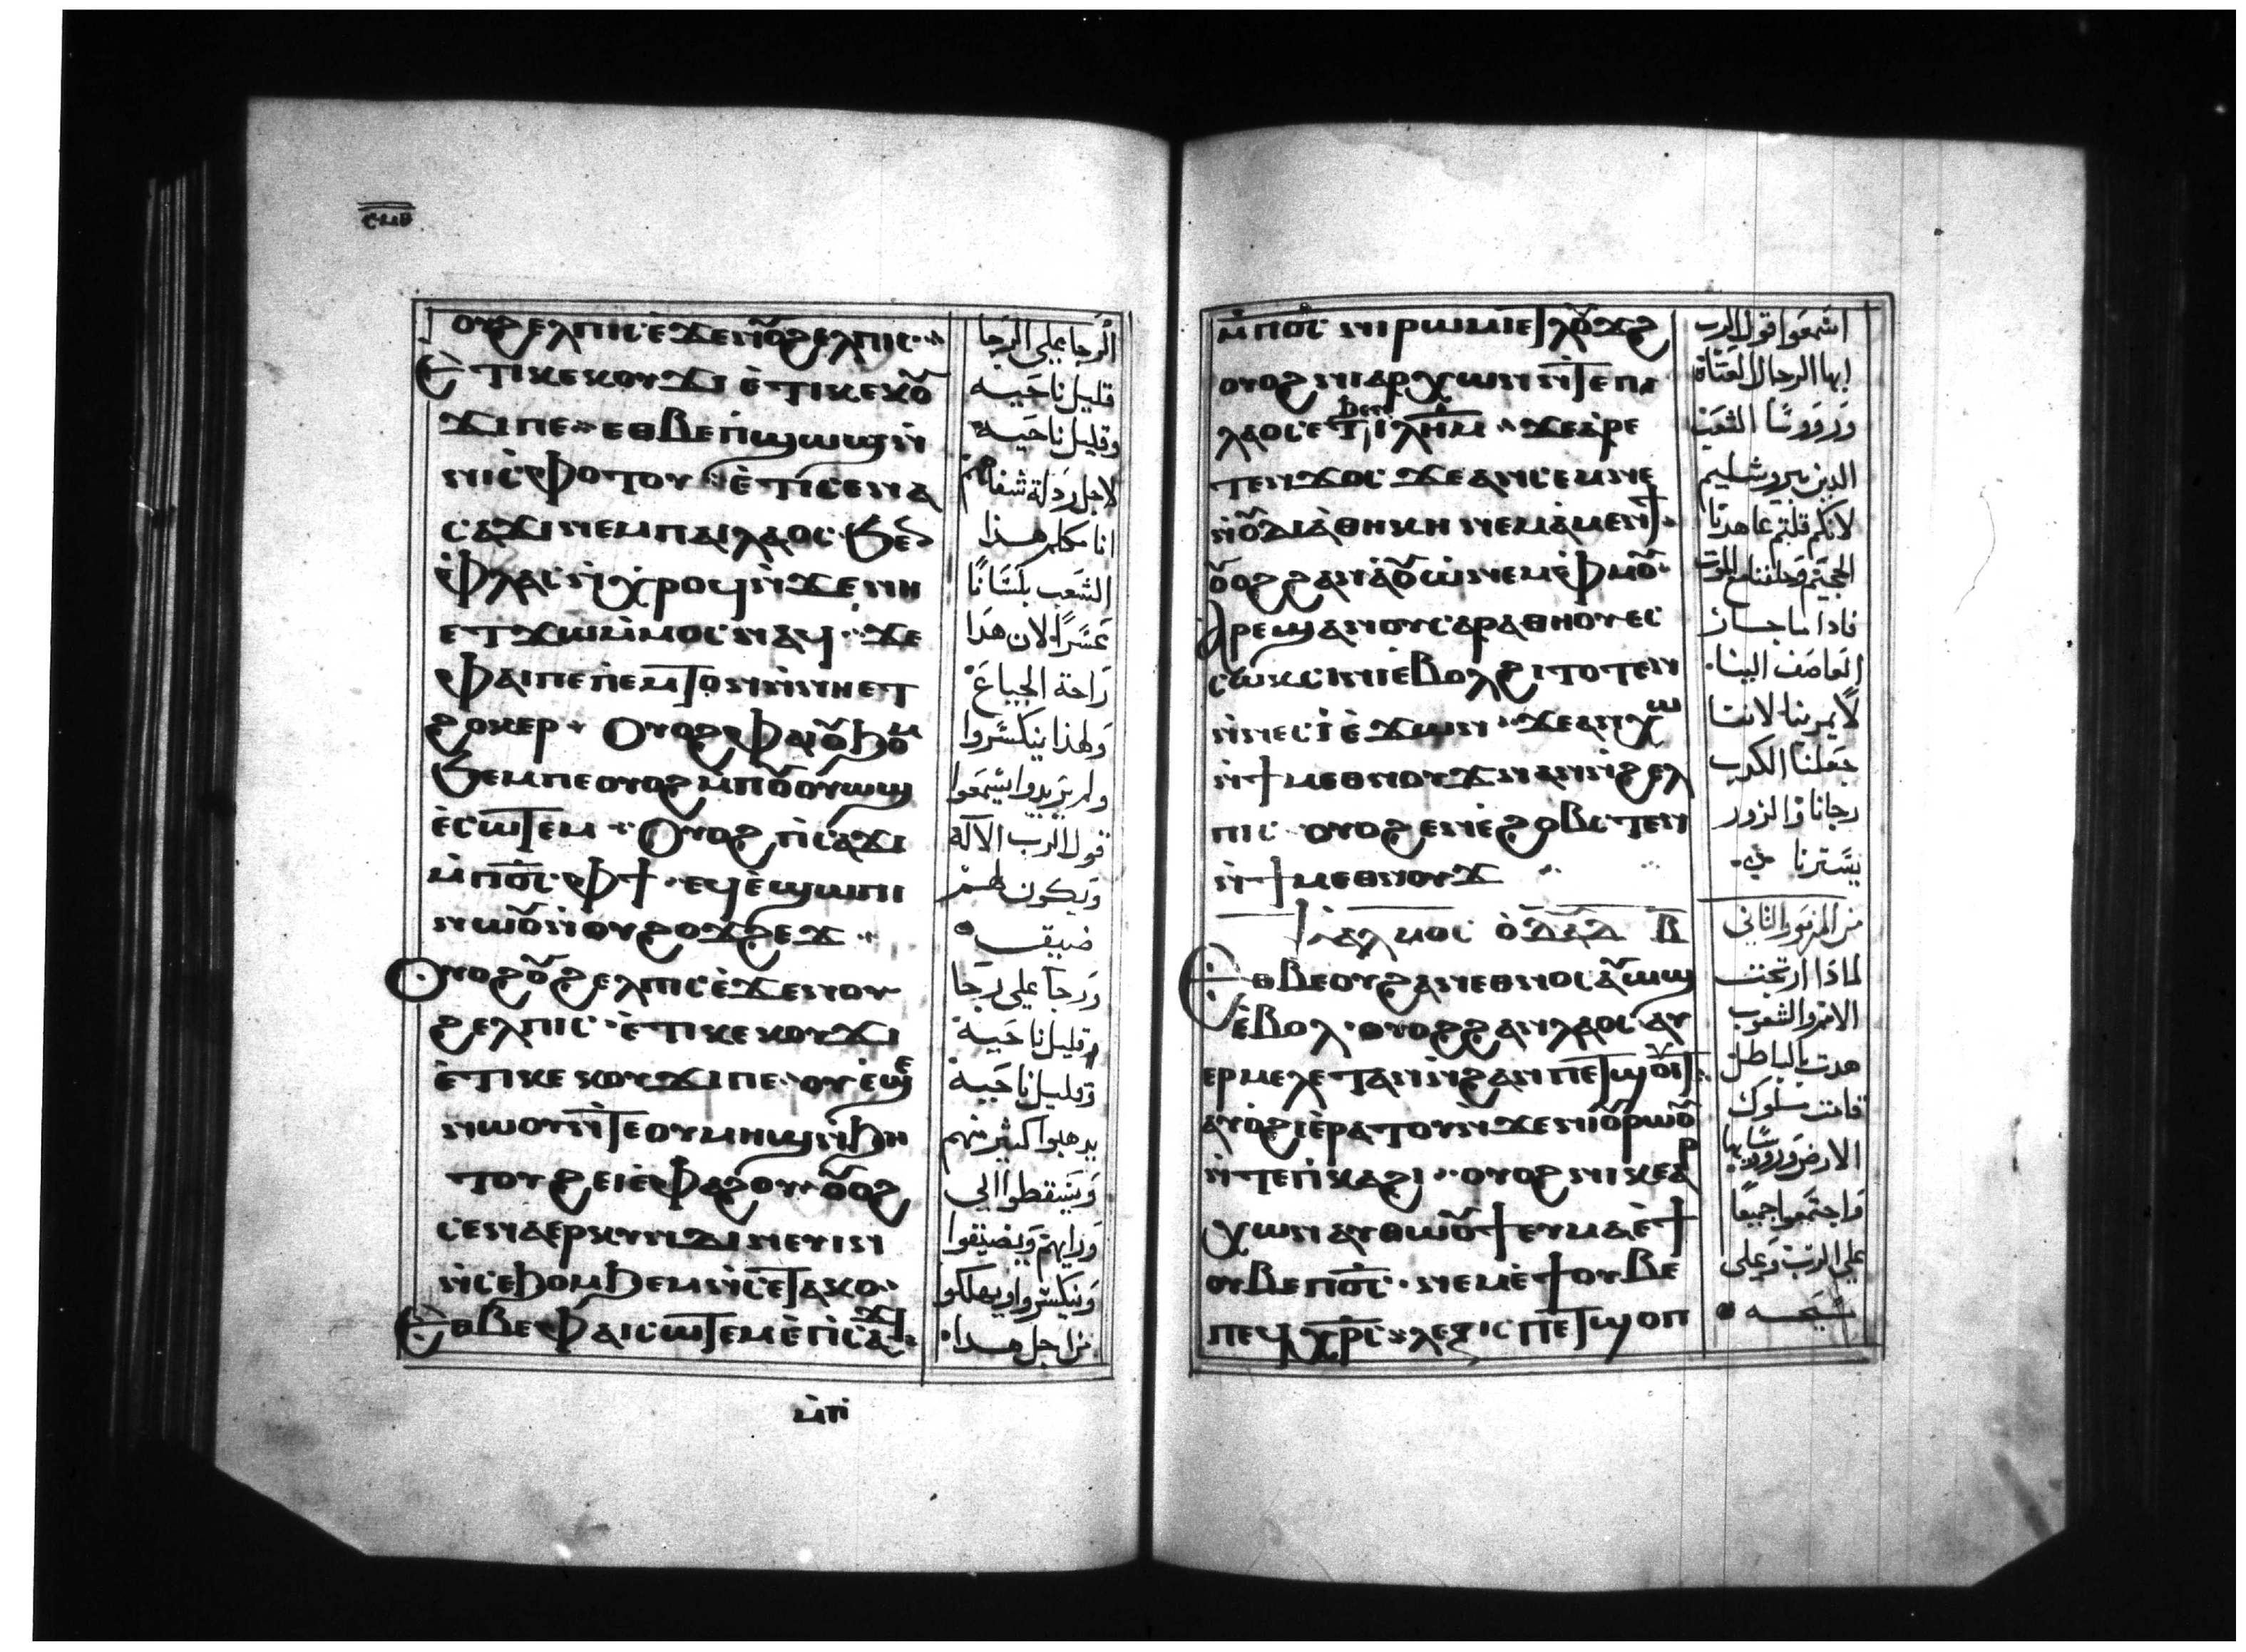 ⲥⲙⲑ
ⲟⲩϩⲉⲗⲡⲓⲥ ⲉ̀ϫⲉⲛⲟⲩ̅ϩⲉⲗⲡⲓⲥ
Ⲉ̀ⲧⲓⲕⲉⲕⲟⲩϫⲓ ⲉ̀ⲧⲓⲕⲉⲕⲟⲩ̅
ϫⲓⲡⲉ ⲉⲑⲃⲉⲡ̀ϣⲱϣⲛ̀
ⲛⲓⲥ̀ⲫⲟⲧⲟⲩ ⲉ̀ⲧⲓⲥⲉⲛⲁ
ⲥⲁϫⲓⲛⲉⲙⲡⲁⲓⲗⲁⲟⲥ
ⲫ̀ⲗⲁⲥⲛ̀ⲭ̀ⲣⲟϥⲛ̀ϫⲉⲛⲏ
ⲉⲧϫⲱⲙ̀ⲙⲟⲥⲛⲁϥ ϫⲉ
ⲫⲁⲓⲡⲉⲡ̀ⲉⲙⲧⲟⲛⲛ̀ⲛⲏⲉⲧ
ϩⲟⲕⲉⲣ Ⲟⲩⲟϩⲫⲁⲓⲟⲩ̅ϧⲟⲙ
ϧⲉⲙⲡⲉⲟⲩⲟϩⲙ̀ⲡⲟⲩ̅ⲟⲩⲱϣ
ⲉ̀ⲥⲱⲧⲉⲙ Ⲟⲩⲟϩ ⲡ̀ⲥⲁϫⲓ
ⲙ̀ⲡⲟ̅ⲥ̅ ⲫϯ ⲉϥⲉ̀ϣⲱⲡⲓ
ⲛⲱⲟⲩ̅ⲛ̀ⲟⲩϩⲟϫϩⲉϫ
Ⲟⲩⲟϩⲟⲩ̅ϩⲉⲗⲡⲓⲥⲉ̀ϫⲉⲛⲟⲩ
ϩⲉⲗⲡⲓⲥ ⲉ̀ⲧⲓⲕⲉⲕⲟⲩϫⲓ
ⲉ̀ⲧⲓⲕⲉⲕⲟⲩϫⲓⲡⲉ ⲟⲩⲉ̀ϣⲉ
ⲛⲱⲟⲩⲛ̀ⲧⲉⲟⲩⲙⲏϣⲛ̀ϧⲏ
ⲧⲟⲩϩⲉⲓⲉ̀ⲫⲁϩⲟⲩ ⲟⲩ̅ⲟϩ
ⲥⲉⲛⲁⲉⲣⲕⲩⲛⲇⲓⲛⲉⲩⲓⲛ
ⲛ̀ⲥⲉϧⲟⲙϧⲉⲙⲛ̀ⲥⲉⲧⲁⲕⲟ
Ⲉⲑⲃⲉⲫⲁⲓⲥⲱⲧⲉⲙⲉ̀ⲡ̀ⲥⲁϫⲓ
الرجا على الرجا
قليل ناحيه
وقليل ناحيه
لاجل رذلة شفاههم
انا مكلم هذا
الشعب بلسانًا
عسرًا لان هذا
راحة الجياع
ولهذا ينكسروا
ولم يريدوا يسمعوا
قول الرب الاله
ويكون لهم
ضيق
ورجا على رجا
وقليل ناحية
وقليل ناحية
يذهبوا كثير منهم
ويسقطوا الى
ورايهم ويضيقوا
وينكسروا ويهلكوا
من اجل هذا
ⲙ̀ⲡ̀
ⲙ̀ⲡⲟ̅ⲥ̅ ⲛⲓⲣⲱⲙⲓⲉⲧⲗⲟⲩ̅ϫϩ
ⲟⲩⲟϩⲛⲓⲁⲣⲭⲱⲛⲛ̀ⲧⲉⲡⲓ
ⲗⲁⲟⲥⲉⲧϧⲉⲛⲓ̅ⲗ̅ⲏ̅ⲙ̅ ϫⲉⲁ̀ⲣⲉ
ⲧⲉⲛϫⲟⲥ ϫⲉⲁⲛⲥⲉⲙⲛⲉ
ⲛ̀ⲟⲩ̅ⲇⲓⲁ̀ⲑⲏⲕⲏ ⲛⲉⲙⲁ̀ⲙⲉⲛϯ
ⲟⲩ̅ⲟϩϩⲁⲛⲁ̀ⲟⲩ̅ⲱ̀ⲛⲉⲙⲫ̀ⲙⲟⲩ̅
Ⲁⲣⲉϣⲁⲛⲟⲩⲥⲁⲣⲁⲑⲏⲟⲩⲉⲥ
ⲥⲱⲕⲥⲓⲛⲓⲉ̀ⲃⲟⲗϩⲓⲧⲟⲧⲉⲛ
ⲛ̀ⲛⲉⲥⲓ̀ ⲉ̀ϫⲱⲛ ϫⲉⲁⲛⲭⲱ
ⲛ̀ϯⲙⲉⲑⲛⲟⲩϫⲛⲁⲛⲛ̀ϩⲉⲗ
ⲡⲓⲥ ⲟⲩⲟϩ ⲉⲛⲉ̀ϩⲟⲃⲥⲧⲉⲛ
ⲛ̀ϯⲙⲉⲑⲛⲟⲩϫ
ⲯⲁⲗⲙⲟⲥ ⲟ̀ⲇⲁⲇ ⲃ̅
Ⲉⲑⲃⲉⲟⲩϩⲁⲛⲉⲑⲛⲟⲥⲁⲩ̅ⲱϣ
ⲉ̀ⲃⲟⲗ ⲟⲩⲟϩϩⲁⲛⲗⲁⲟⲥ ⲁⲩ
ⲉⲣⲙⲉⲗⲉⲧⲁⲛⲛ̀ϩⲁⲛⲡⲉⲧϣⲟⲩ̅ⲓⲧ
ⲁⲩⲟ̀ϩⲓⲉ̀ⲣⲁⲧⲟⲩⲛ̀ϫⲉⲛⲓⲟⲩ̅ⲣⲱⲟⲩ̅
ⲛ̀ⲧⲉⲡ̀ⲕⲁϩⲓ ⲟⲩⲟϩ ⲛⲓⲕⲉⲁⲣ
ⲭⲱⲛⲁⲩⲑⲱⲟⲩ̅ϯ ⲉⲩⲙⲁ ⲉ̀ϯ
ⲟⲩⲃⲉⲡⲟ̅ⲥ̅ ⲛⲉⲙⲉ̀ϯⲟⲩⲃⲉ
ⲡⲉϥⲭ̅ⲣ̅ⲥ̅ ⲗⲉⲝⲓⲥ ⲡⲉⲧϣⲟⲡ
اسمعوا قول الرب
ايها الرجال العتاة
ورووسًا الشعب
الذين بيروشليم
لانكم قلتم عاهدنا
الجحيم وحلفنا مع الموت
فاذا ما جاز
العاصف الينا
لا يمر بنا لاننا
جعلنا الكذب
رجانا والزور
يسترنا
من المزمور الثاني
لماذا ارتجت
الامم والشعوب
هدت بالباطل
قامت ملوك
الارض وروسايها
واجتمعوا جميعًا
على الرب وعلى
مسيحه